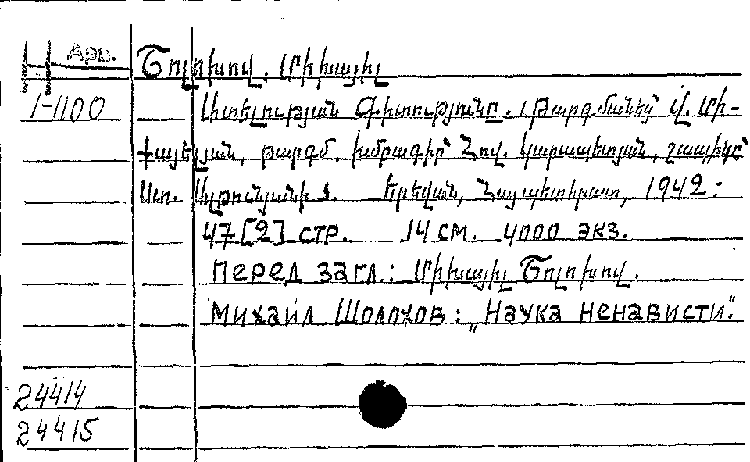 Ч Арв. Շոլոխով. Միխայիլ
1-1100 Ատելության գիտությունը. Թարգմանեց Վ. Մի-
քայելյան, թարգմ. խմբագիր՝ Հով. Կարապետյան, շապիկը՝
Երևան, Հայպետհրատ, 1942:
47 [2] стр. 14 см. 4000 экз.
Перед загл.: Միխայիլ Շոլոխով.
Михаил Шолохов: „Наука ненависти".
24414
24415